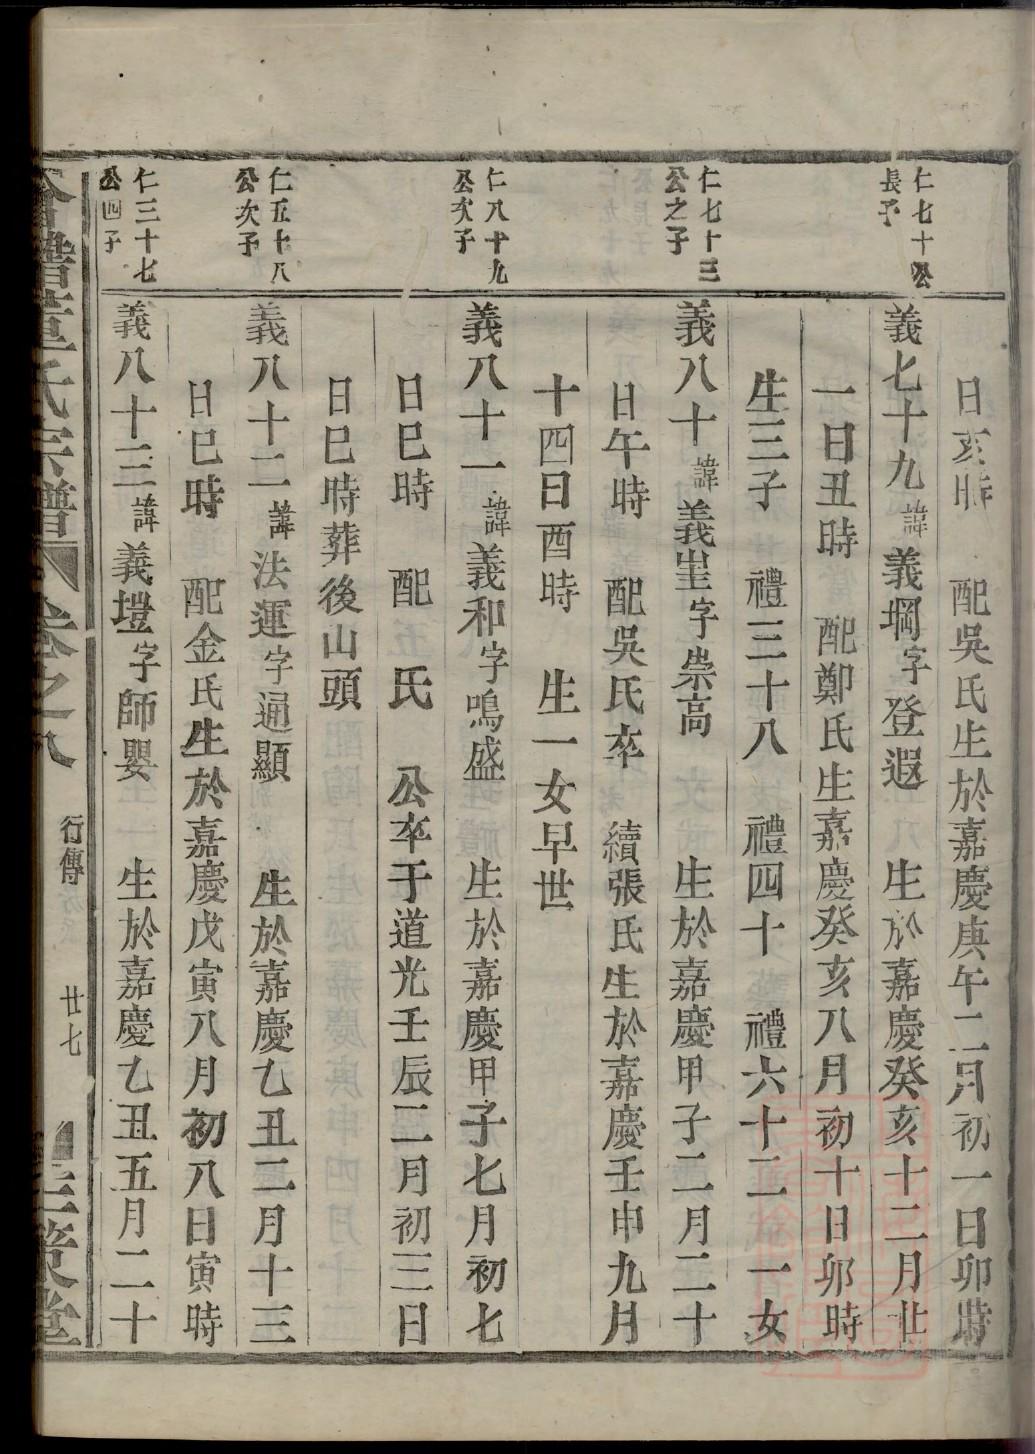 日亥時　配吳氏生於嘉慶庚午二月初一日卯時
仁七十公
長子
義七十九諱義堈字登遐　生於嘉慶癸亥十二月廿
一日丑時　配鄭氏生嘉慶癸亥八月初十日卯時
生三子　禮三十八　禮四十　禮六十二　一女
仁七十三
公之子
義八十諱義塁字崇高　生於嘉慶甲子二月二十
日午時　配吳氏卒　續張氏生於嘉慶壬申九月
十四日酉時　生一女早世
仁八十九
公次子
義八十一諱義和字鳴盛　生於嘉慶甲子七月初七
日巳時　配　氏　公卒于道光壬辰二月初三日
日巳時葬後山頭
仁五十八
公次子
義八十二諱法運字通顯　生於嘉慶乙丑二月十三
日巳時　配金氏生於嘉慶戊寅八月初八日寅時
仁三十七
公四子
義八十三諱義塏字師嬰　生於嘉慶乙丑五月二十
譜董氏宗譜　卷之八　行傳　廿七　三策堂